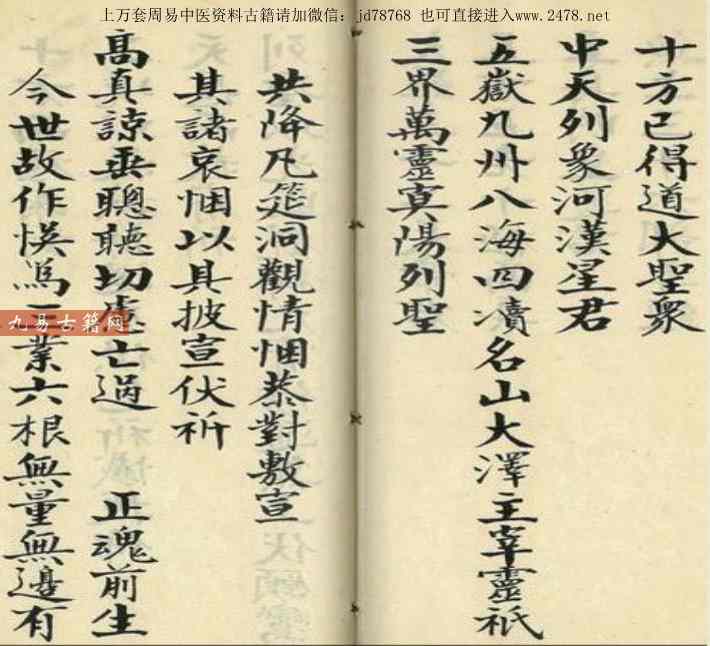 上万套周易中医资料古籍请加微信：jd78768 也可直接进入www.2478.net
十方已得道大聖衆
中天列衆河漢星君
五嶽九州八海四瀆名山大澤主宰靈祇
三界萬靈㝠陽列聖
共降凡筵洞觀情悃恭對敷宣
其諸哀悃以具披宣伏祈
高真諒垂聰聽切慮亡過 正魂前生
今世故作悞為三業六根無量無邊有
九易古籍网